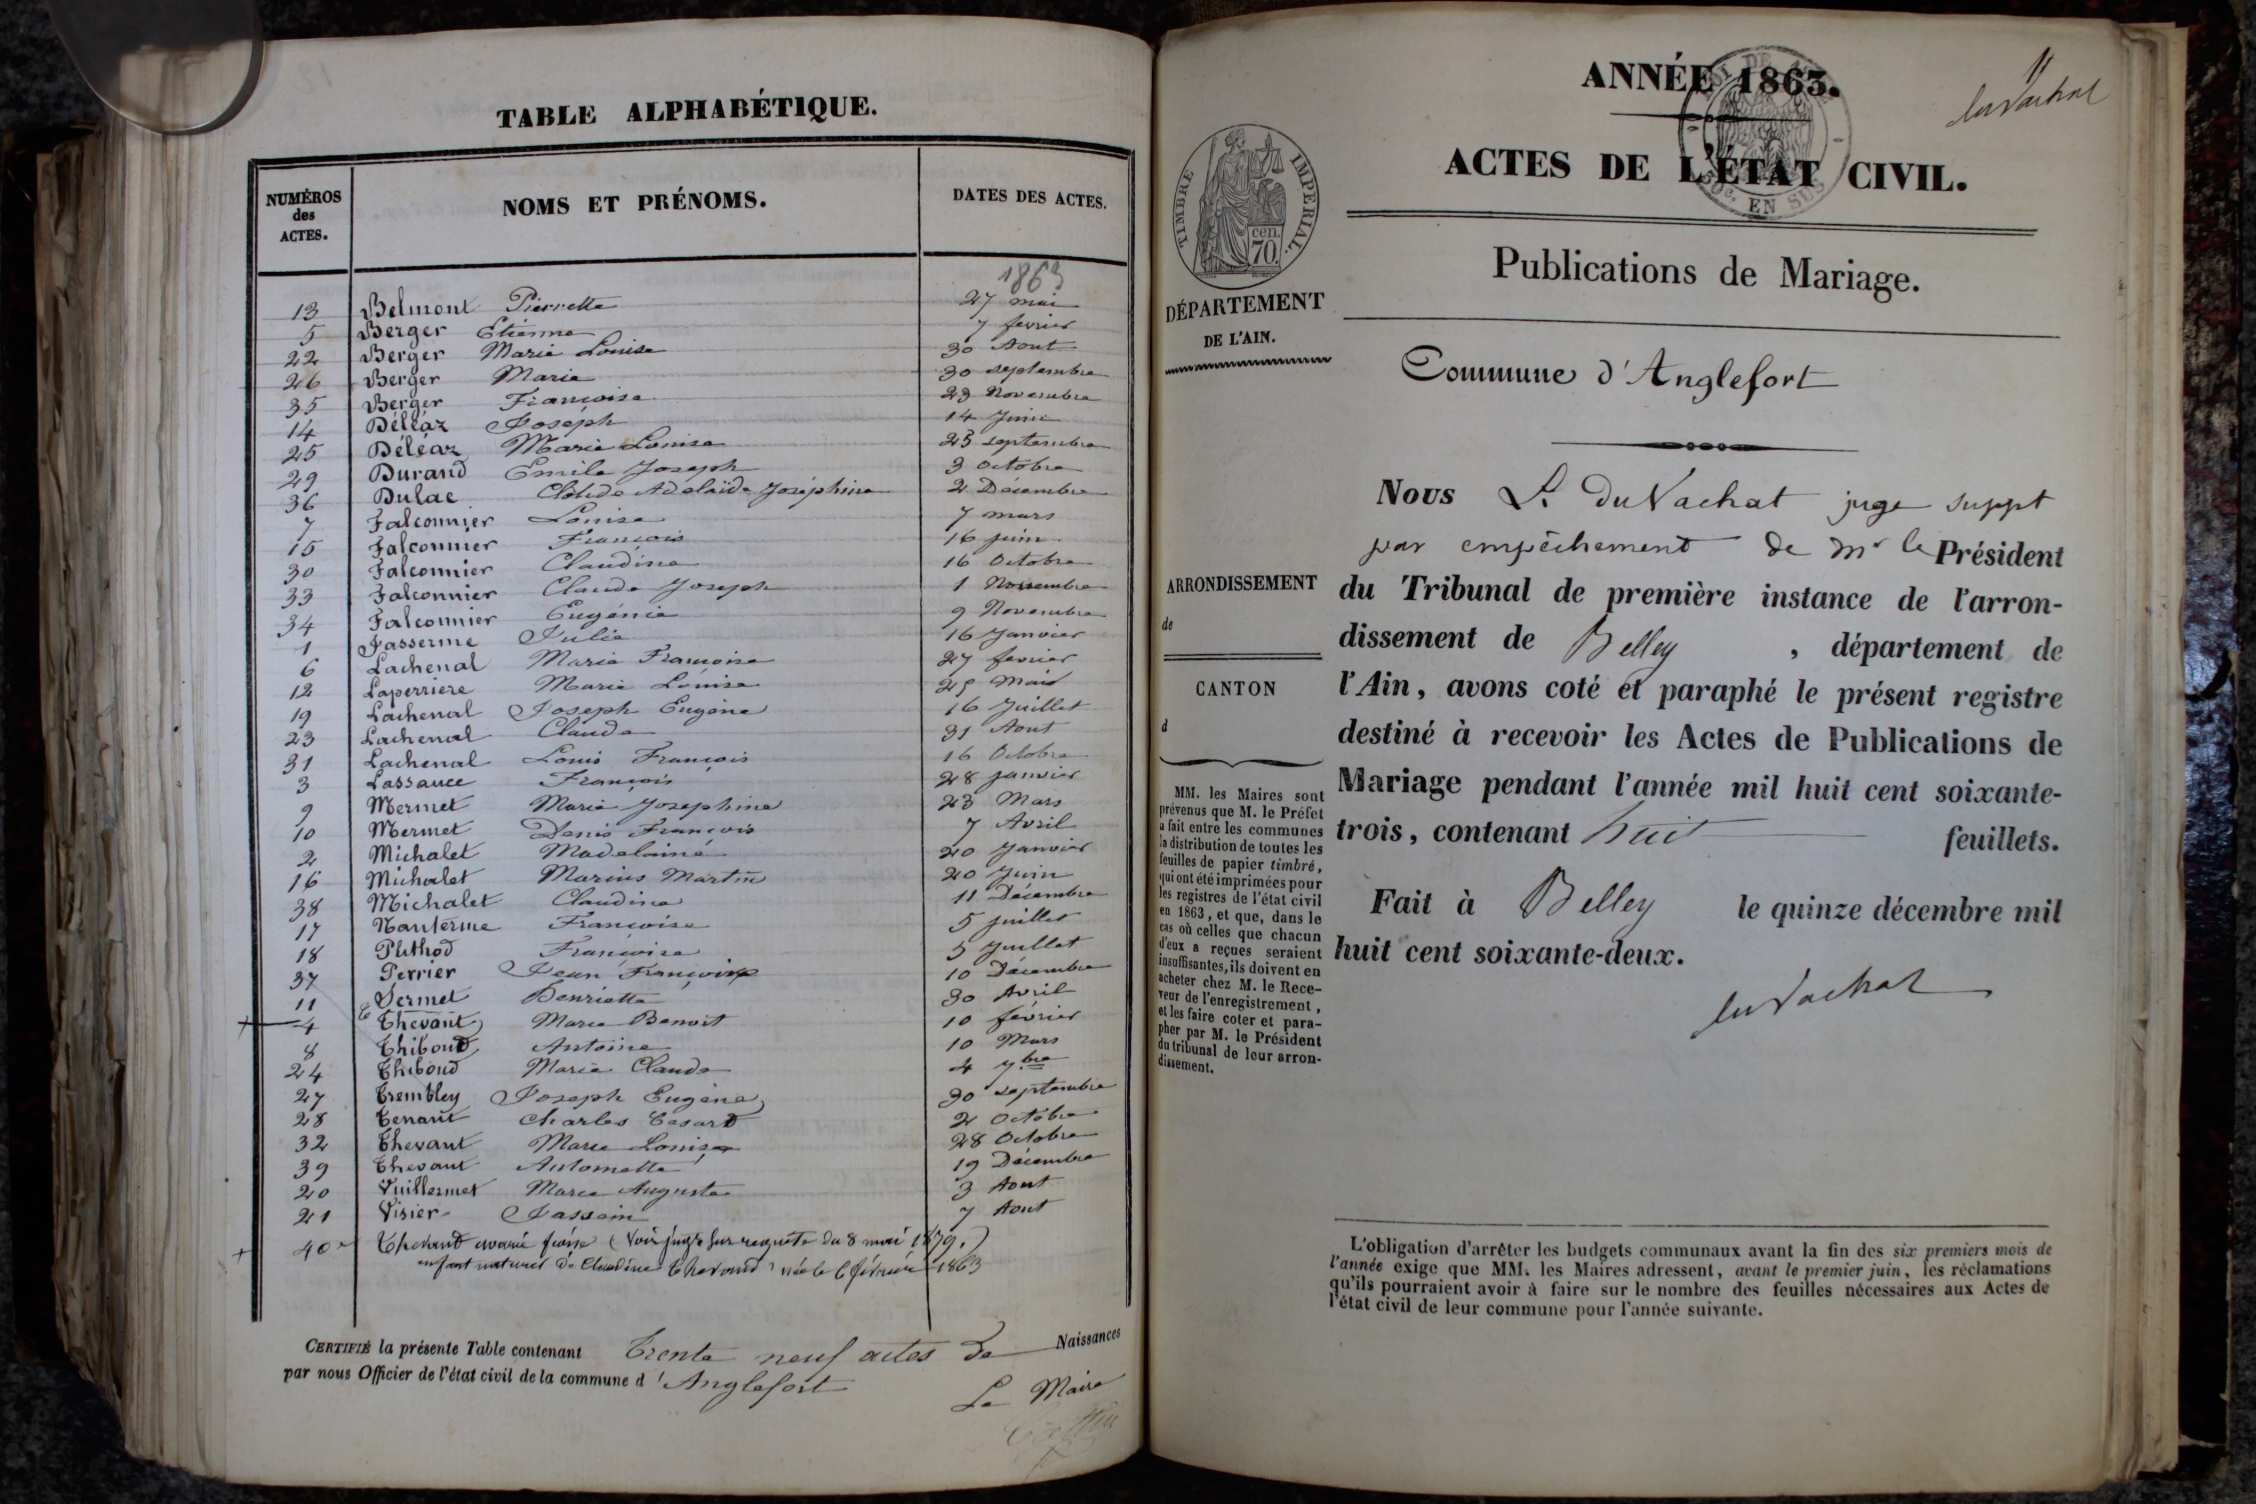 TABLE ALPHABÉTIQUE.
NUMÉROS des ACTES.
NOMS ET PRÉNOMS.
DATES DES ACTES.
1863
13 Belmont Pierrette 27 mai
5 Berger Etienne 7 fevrier
22 Berger Marie Louise 30 Aout
26 Berger Marie 30 septembre
35 Berger Françoise 23 Novembre
14 Déléaz Joséph 14 Juin
25 Déléaz Marie Louise 23 septembre
29 Durand Emile Joseph 3 Octobre
36 Dulac Clotide Adelaïde Joséphine 2 Décembre
7 Falconnier Louise 7 mars
15 Falconnier François 16 juin
30 Falconnier Claudine 16 Octobre
33 Falconnier Claude Joseph 1 Novembre
34 Falconnier Eugénie 9 Novembre
1 Jasserme Julie 16 Janvier
6 Lachenal Marie Françoise 27 fevrier
12 Laperriere Marie Louise 25 Mai
19 Lachenal Joseph Eugène 16 Juillet
23 Lachenal Claude 31 Aout
31 Lachenal Louis François 16 Octobre
3 Lassauce François 28 janvier
9 Mermet Marie Josephine 23 Mars
10 Mermet Denis François 7 Avril
2 Michalet Madelaine 20 Janvier
16 Michalet Marius Martin 20 Juin
38 Michalet Claudine 11 Décembre
17 Nanterme Françoise 5 juillet
18 Pithod Françoise 5 Juillet
37 Perrier Jean 10 Décembre
11 Sermet Henriette 30 Avril
4 Thevant Marie Benoit 10 février
8 Thiboud Antoine 10 Mars
24 Thiboud Marie Claude 4 7bre
27 Trembley Joseph Eugène 30 septembre
28 Tenant Charles Cesard 2 Octobre
32 Thevant Marie Louise 28 Octobre
39 Thevant Antoinette 19 Décembre
20 Vuillermet Marie Auguste 3 Aout
21 Visier 7 Aout
40 Thevand marie (Voir jugt sur requête du 8 mai 1879.)
enfant naturel de Claudine Thevand, née le 6 février 1863
CERTIFIÉ la présente Table contenant Trente neuf actes de Naissances
par nous Officier de l'état civil de la commune d'Anglefort
Le Maire
ANNÉE 1863.
duVachat
ACTES DE L'ÉTAT CIVIL.
EN SUS
TIMBRE IMPÉRIAL.
cen. 70.
Publications de Mariage.
DÉPARTEMENT
DE L'AIN.
Commune d'Anglefort
Nous L. DuVachat juge suppt
par empêchement de Mr le Président
du Tribunal de première instance de l'arron-
dissement de Belley, département de
l'Ain, avons coté et paraphé le présent registre
destiné à recevoir les Actes de Publications de
Mariage pendant l'année mil huit cent soixante-
trois, contenant huit feuillets.
Fait à Belley le quinze décembre mil
huit cent soixante-deux.
duVachat
ARRONDISSEMENT
de
CANTON
d
MM. les Maires sont
prévenus que M. le Préfet
a fait entre les communes
la distribution de toutes les
feuilles de papier timbré,
qui ont été imprimées pour
les registres de l'état civil
en 1863, et que, dans le
cas où celles que chacun
d'eux a reçues seraient
insuffisantes, ils doivent en
acheter chez M. le Rece-
veur de l'enregistrement,
et les faire coter et para-
pher par M. le Président
du tribunal de leur arron-
dissement.
L'obligation d'arrêter les budgets communaux avant la fin des six premiers mois de
l'année exige que MM. les Maires adressent, avant le premier juin, les réclamations
qu'ils pourraient avoir à faire sur le nombre des feuilles nécessaires aux Actes de
l'état civil de leur commune pour l'année suivante.